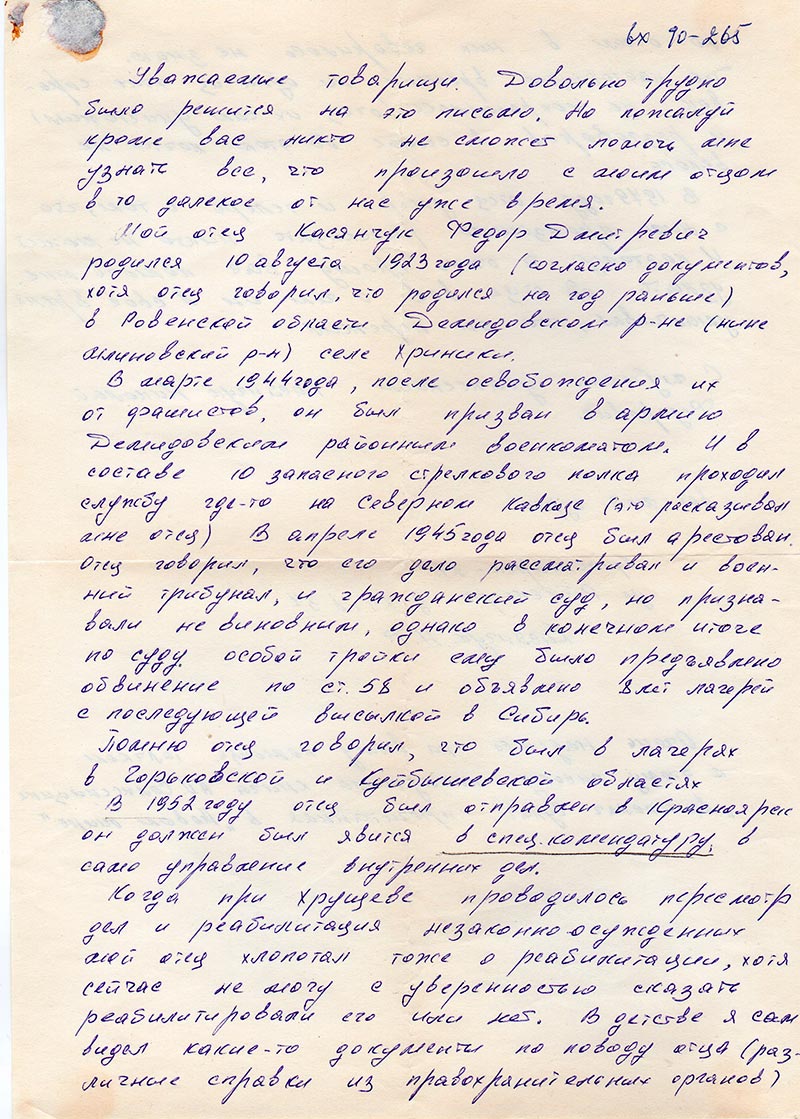 вх 90-265
Уважаемые товарищи. Довольно трудно
было решится на это письмо. Но пожалуй
кроме вас никто не сможет помочь мне
узнать все, что произошло с моим отцом
в то далекое от нас уже время.
Мой отец Касянчук Федор Дмитревич
родился 10 августа 1923 года (согласно документов,
хотя отец говорил, что родился на год раньше)
в Ровенской области Демидовском р-не (ныне
Млиновский р-н) селе Хриники.
В марте 1944 года, после освобождения их
от фашистов, он был призван в армию
Демидовским районным военкоматом. И в
составе 10 запасного стрелкового полка проходил
службу где-то на Северном Кавказе (это расказывал
мне отец) В апреле 1945 года отец был арестован.
Отец говорил, что его дело рассматривал и воен-
ний трибунал, и гражданский суд, но призна-
вали невиновным, однако в конечном итоге
по суду особой тройки ему было предъявлено
обвинение по ст. 58 и объявлено 8 лет лагерей
с последующей высылкой в Сибирь.
Помню отец говорил, что был в лагерях
в Горьковской и Куйбышевской областях
В 1952 году отец был отправлен в Красноярск
он должен был явится в спец.комендатуру, в
само управление внутренних дел.
Когда при Хрущеве проводилось пересмотр
дел и реабилитация незаконно осужденных
мой отец хлопотал тоже о реабилитации, хотя
сейчас не могу с уверенностью сказать
реабилитировали его или нет. В детстве я сам
видел какие-то документы по поводу отца (раз-
личные справки из правохранительных органов)